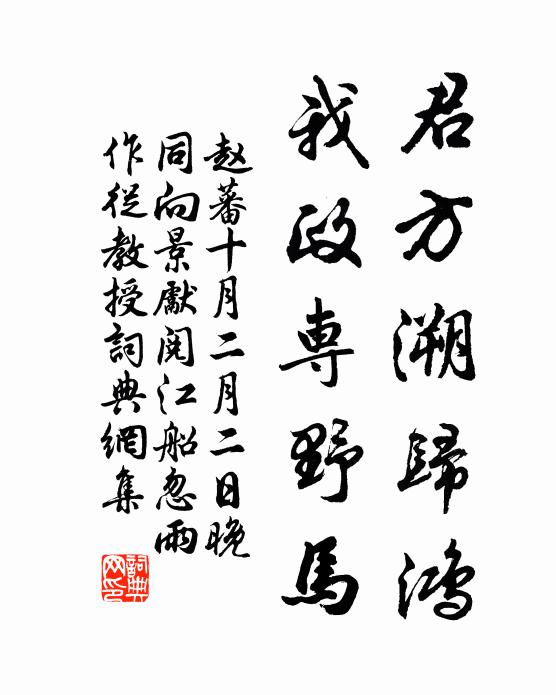 君方溯歸鴻
我政專野馬
赵蕃十月二月二日晚
同向景獻閱江船忽雨
作從教授詞典網集
詞典
网印